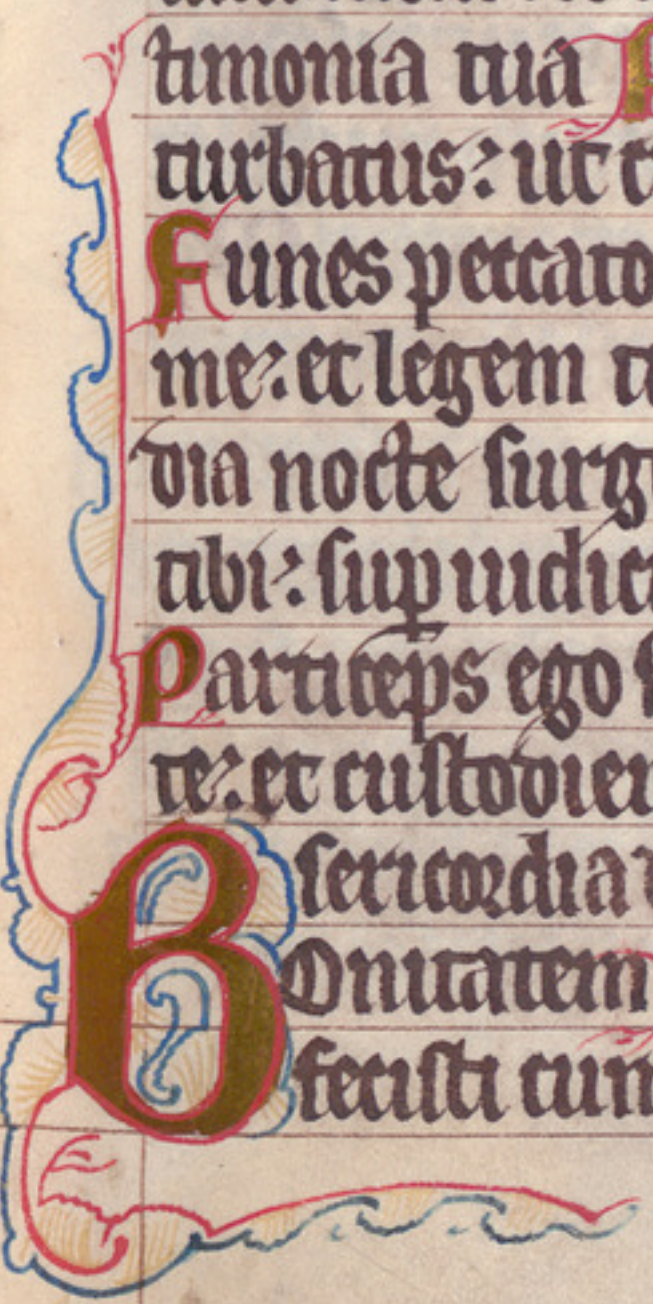 timonia tua P
turbatus: ut
Funes peccato
me: et legem
dia nocte surg
tibi: sup iudic
Particeps ego
te: et custodien
sericordia
Bonitatem
fecisti cum